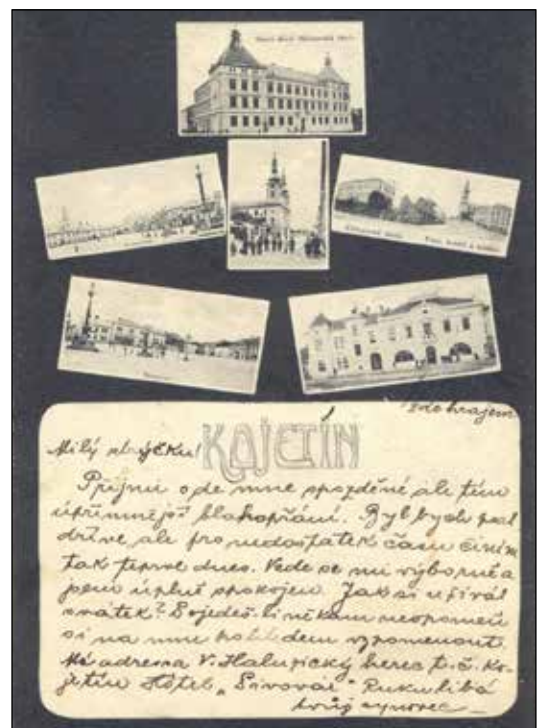 KOJETÍN
zde hrajem
Milý strýčku!
Přijmi ode mne zpožděné ale tím
upřímnější blahopřání. Byl bych psal
dříve ale pro nedostatek času činím
tak teprve dnes. Vede se mi výborně a
jsem úplně spokojen. Jak si užíval
svátek? Pojedeš-li někam neopomeň
si na mne pohledem vzpomenout.
Má adresa V. Haluzický herec t. č. Ko-
jetín Hôtel „Pivovar“ Ruku líbá
tvůj synovec